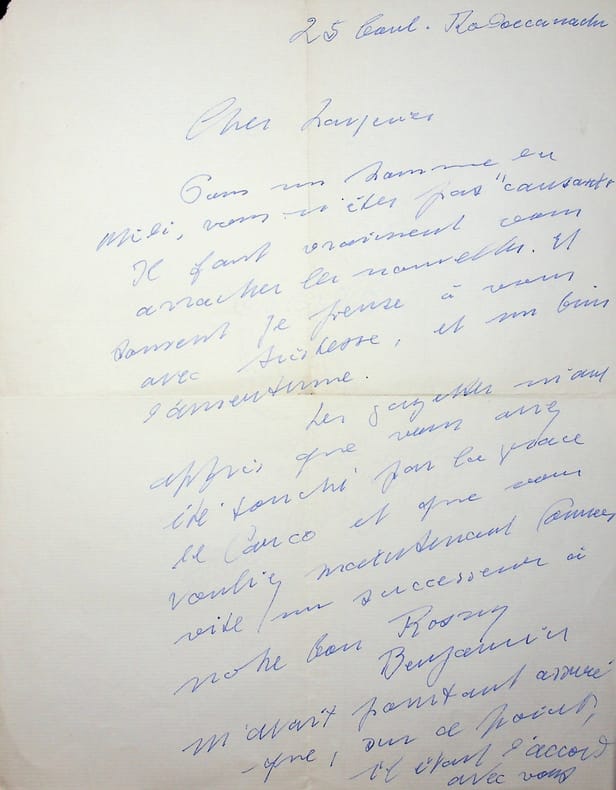 25 Boul. Rochechouart
Cher Larguier
Pour un homme du
Midi, vous n'êtes pas "causant"
Il faut vraiment vous
arracher les nouvelles. Et
souvent je pense à vous
avec tristesse, et un brin
d'amertume.
Les gazettes m'ont
appris que vous avez
été touché par la grace
de Carco et que vous
vouliez maintenant
vite un successeur à
notre bon Rosny
Benjamin
m'avait pourtant assuré
que, sur ce point,
il était d'accord
avec vous